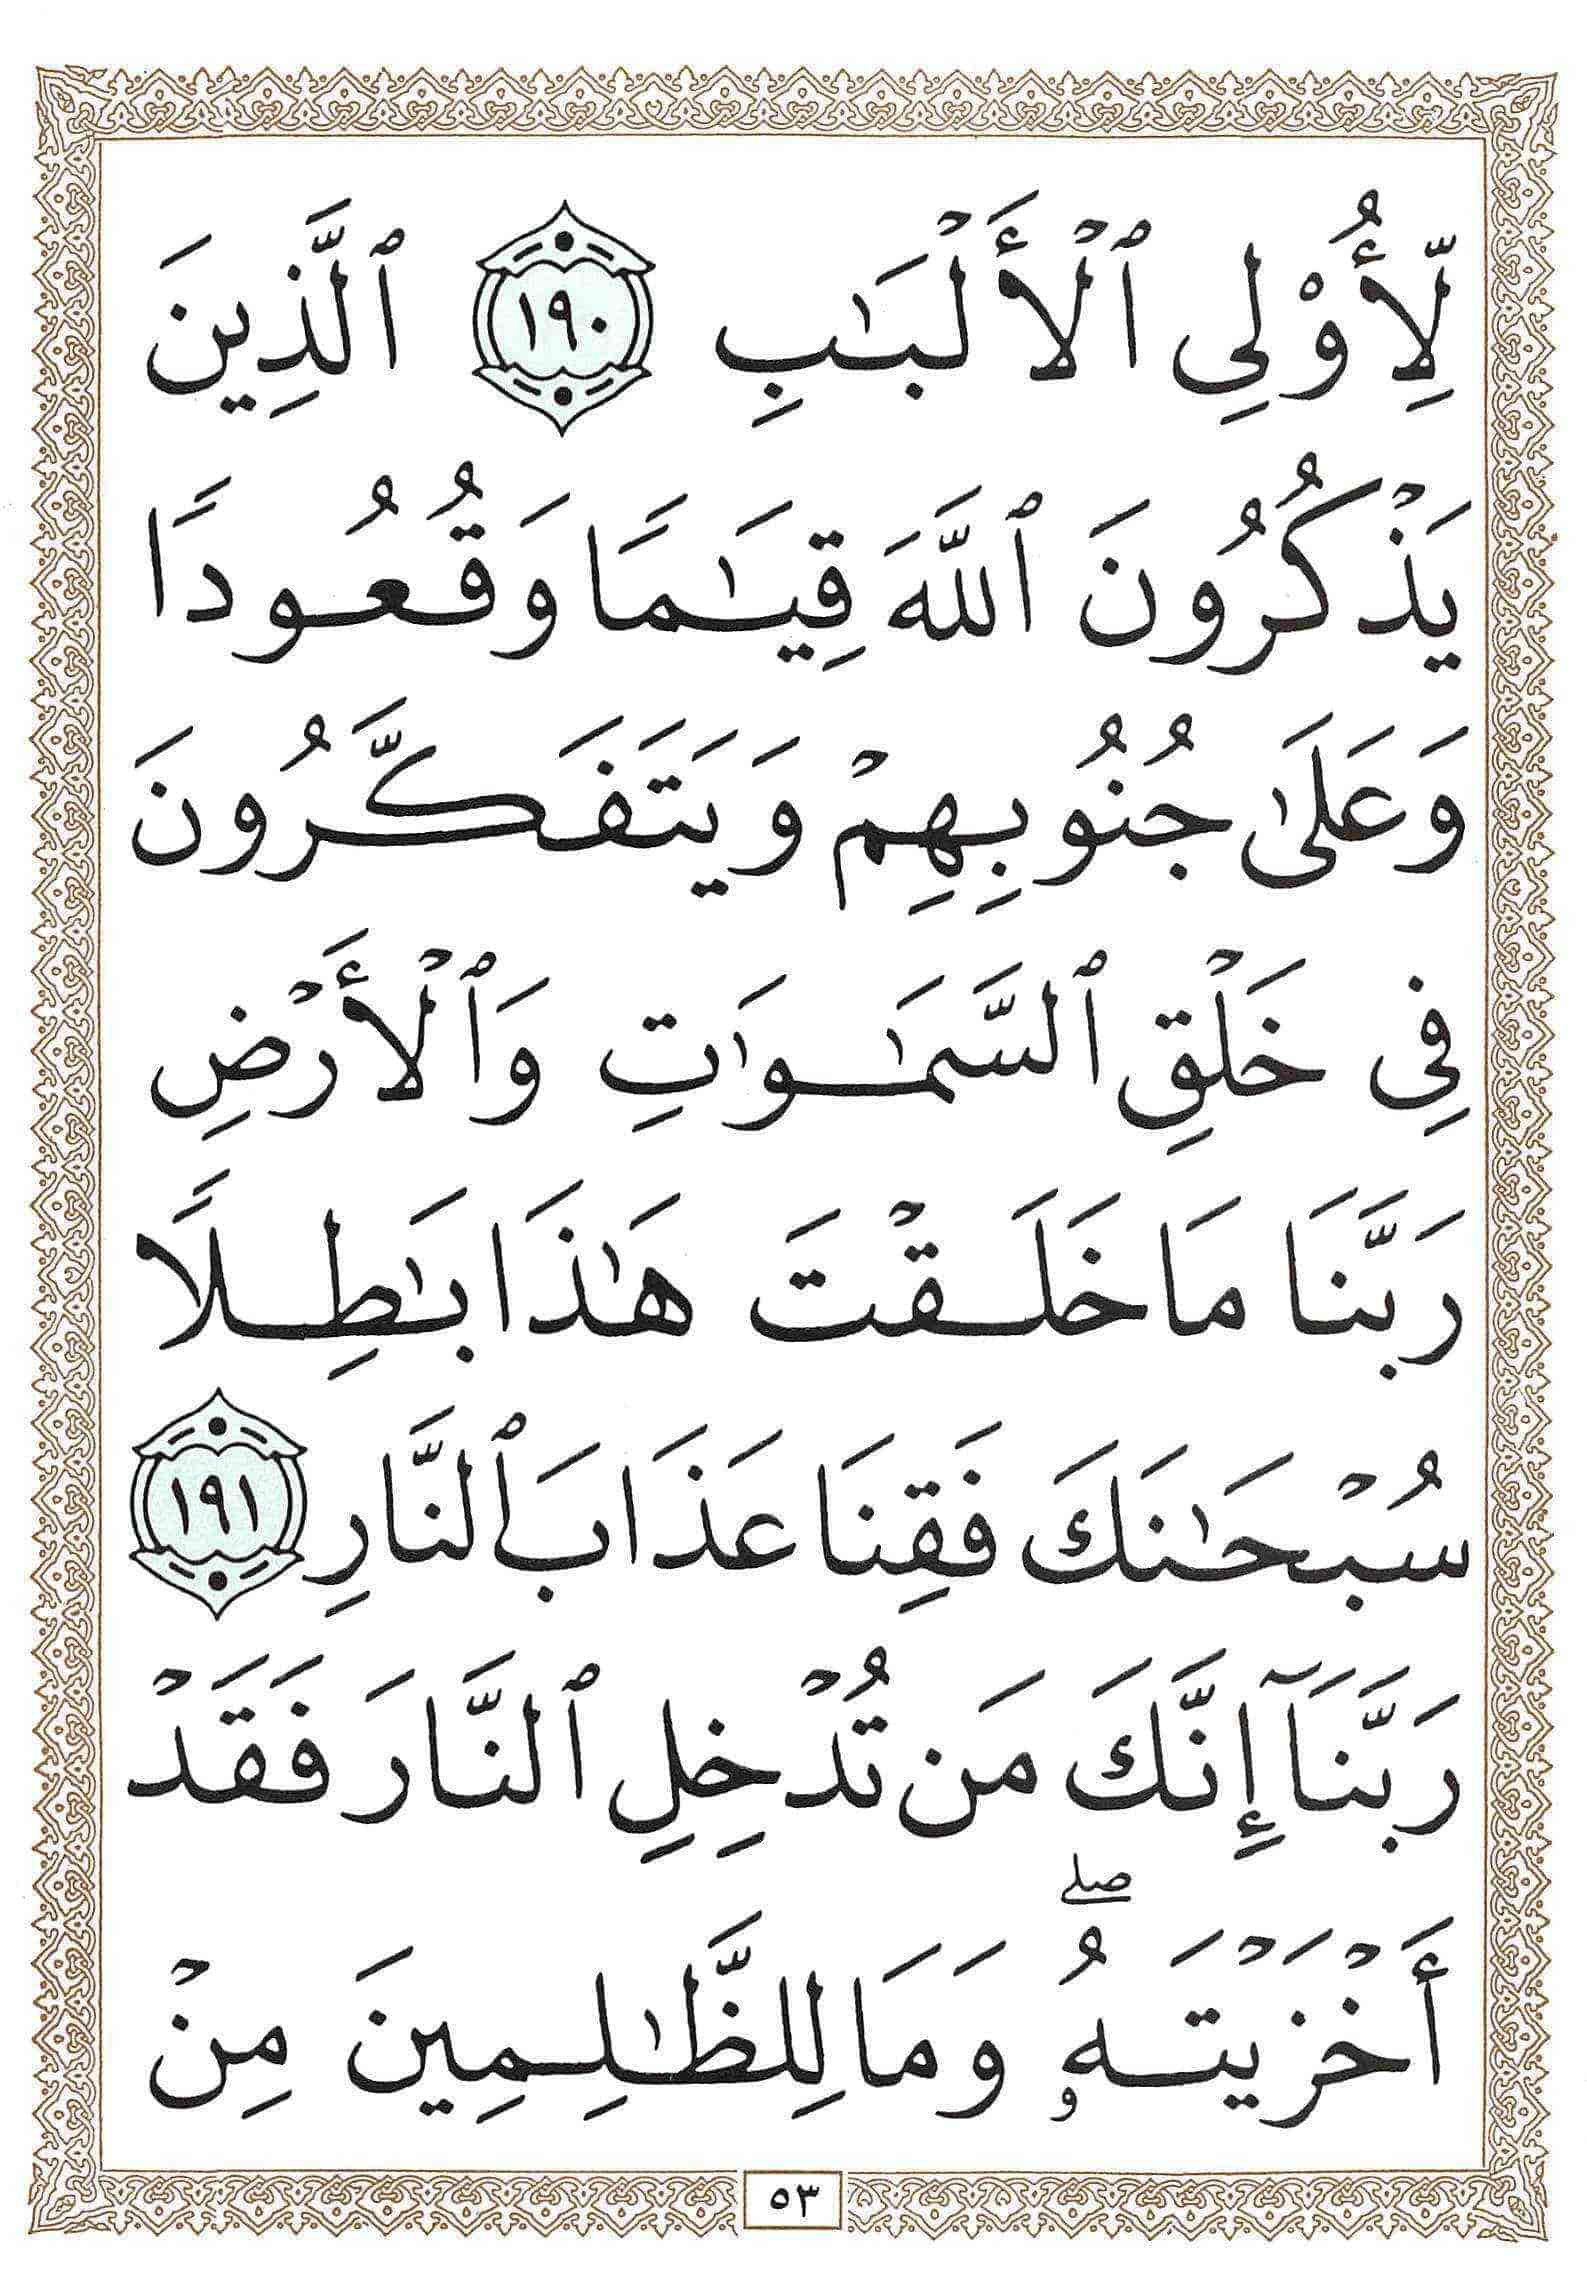 لِّأُوْلِى ٱلْأَلْبَـٰبِ ١٩٠ ٱلَّذِينَ
يَذْكُرُونَ ٱللَّهَ قِيَـٰمًا وَقُعُودًا
وَعَلَىٰ جُنُوبِهِمْ وَيَتَفَكَّرُونَ
فِى خَلْقِ ٱلسَّمَـٰوَٰتِ وَٱلْأَرْضِ
رَبَّنَا مَا خَلَقْتَ هَـٰذَا بَـٰطِلًا
سُبْحَـٰنَكَ فَقِنَا عَذَابَ ٱلنَّارِ ١٩١
رَبَّنَآ إِنَّكَ مَن تُدْخِلِ ٱلنَّارَ فَقَدْ
أَخْزَيْتَهُۥ ۖ وَمَا لِلظَّـٰلِمِينَ مِنْ
٥٣